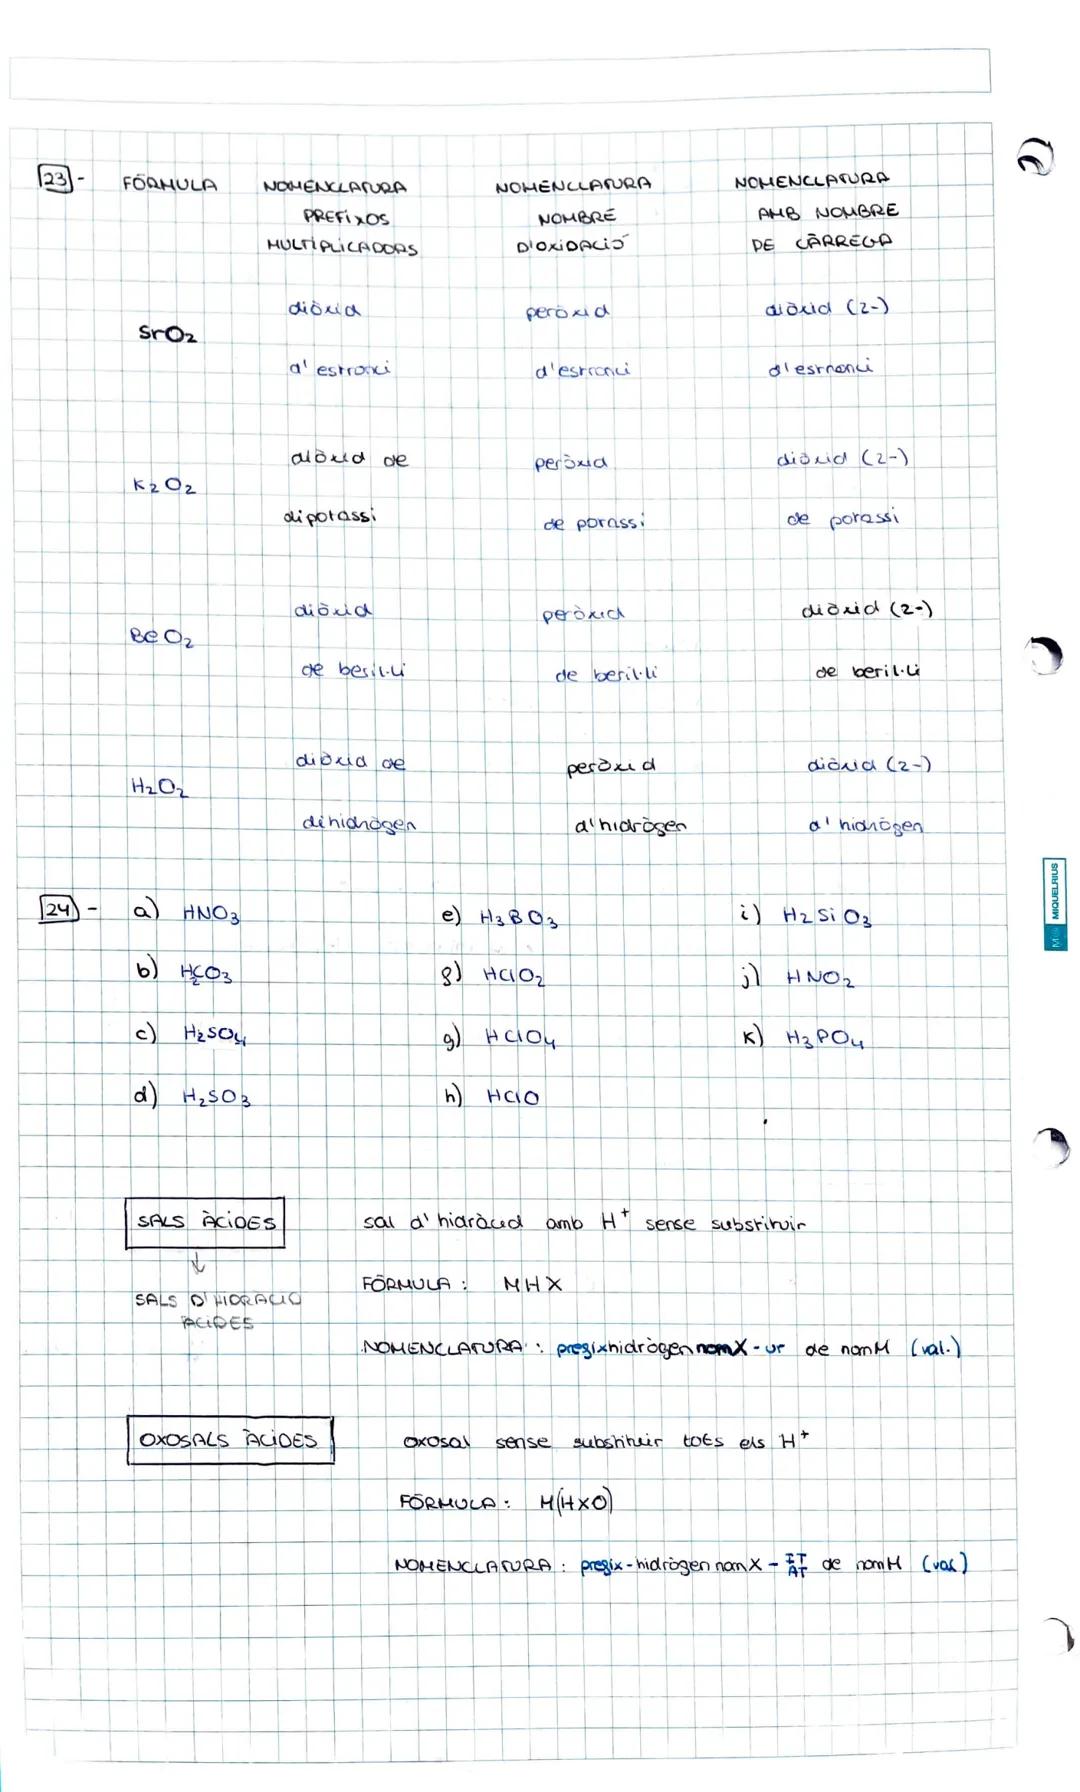 23 - FÓRMULA NOMENCLATURA NOMENCLATURA NOMENCLATURA
PREFIXOS NOMBRE AMB NOMBRE
MULTIPLICADORS D'OXIDACIÓ DE CÀRREGA
diòxid peròxid diòxid (2-)
SrO2
d'estronci d'estronci d'estronci
diòxid de peròxid diòxid (2-)
K2O2
dipotassi de potassi de potassi
diòxid peròxid diòxid (2-)
BeO2
de besil·li de beril·li de beril·li
diòxid de peròxid diòxid (2-)
H2O2
dihidrògen d'hidrògen d'hidrògen
24 - a) HNO3 e) H3BO3 i) H2SiO3
b) H2CO3 f) HClO2 j) HNO2
c) H2SO4 g) HClO4 k) H3PO4
d) H2SO3 h) HClO
SALS ÀCIDES sal d'hidràcid amb H+ sense substituir
↓
FÓRMULA : MHX
SALS D'HIDRACID
ÀCIDES
NOMENCLATURA : prefixhidrògen nomX - ur de nomM (val.)
OXOSALS ÀCIDES oxosal sense substituir tots els H+
FÓRMULA : M(HXO)
NOMENCLATURA : prefix - hidrògen nomX - IT AT de nomM (val)
M MIQUELRIUS